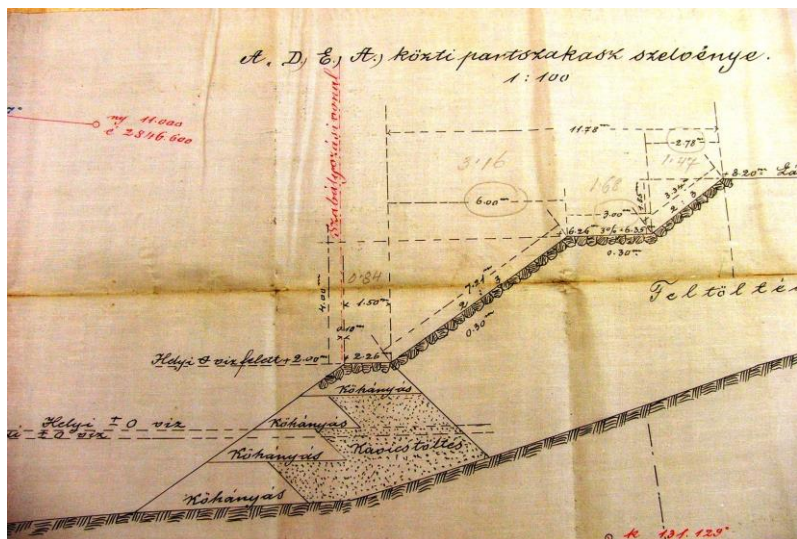 A, D, E, A, közti partszakasz szelvénye.
1:100
ny 11.000
é 2846.600
Szabályozási vonal
11.78 m
2.78 m
3.16
1.47
1.68
6.00 m
3.00 m
1.85 m
3.34 m
2:3
+8.20 m
6.26 m 3% 6.35 m
0.30 m
4.00 m
0.84
1.50 m
7.21 m
2:3
0.30 m
0.10 m
Feltölté
Helyi 0 víz felett +2.00 m
+2.26
Kőhányás
Helyi ± 0 víz
Kőhányás
± 0 víz
Kavicstöltés
Kőhányás
Kőhányás
k 131.129